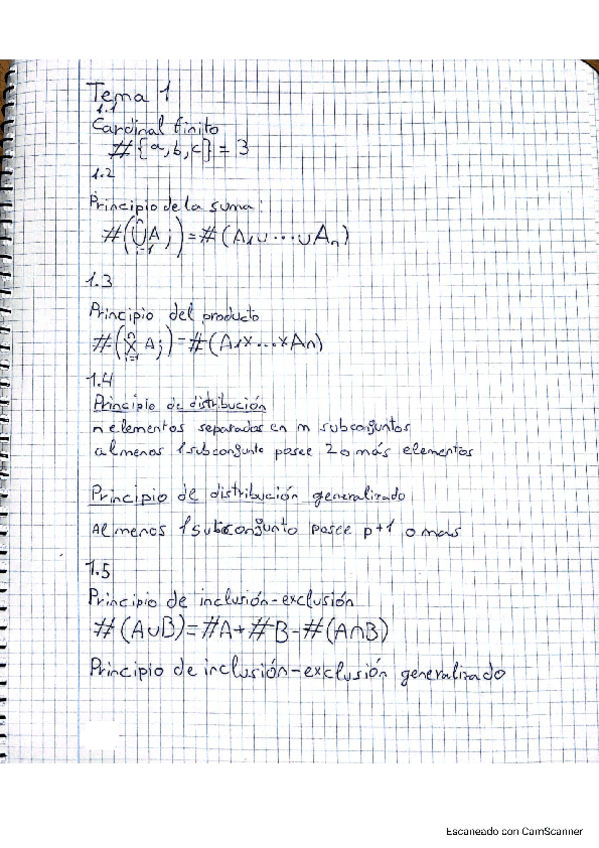 Tema 1
1.1
Cardinal finito
#{a,b,c} = 3
1.2
Principio de la suma:
#(⋃ⁿᵢ₌₁ Aᵢ) = #(A₁∪...∪Aₙ)
1.3
Principio del producto
#(×ⁿᵢ₌₁ Aᵢ) = #(A₁×...×Aₙ)
1.4
Principio de distribución
n elementos separados en m subconjuntos
al menos 1 subconjunto posee 2 o más elementos
Principio de distribución generalizado
Al menos 1 subconjunto posee p+1 o mas
1.5
Principio de inclusión-exclusión
#(A∪B)=#A+#B-#(A∩B)
Principio de inclusión-exclusión generalizado
Escaneado con CamScanner